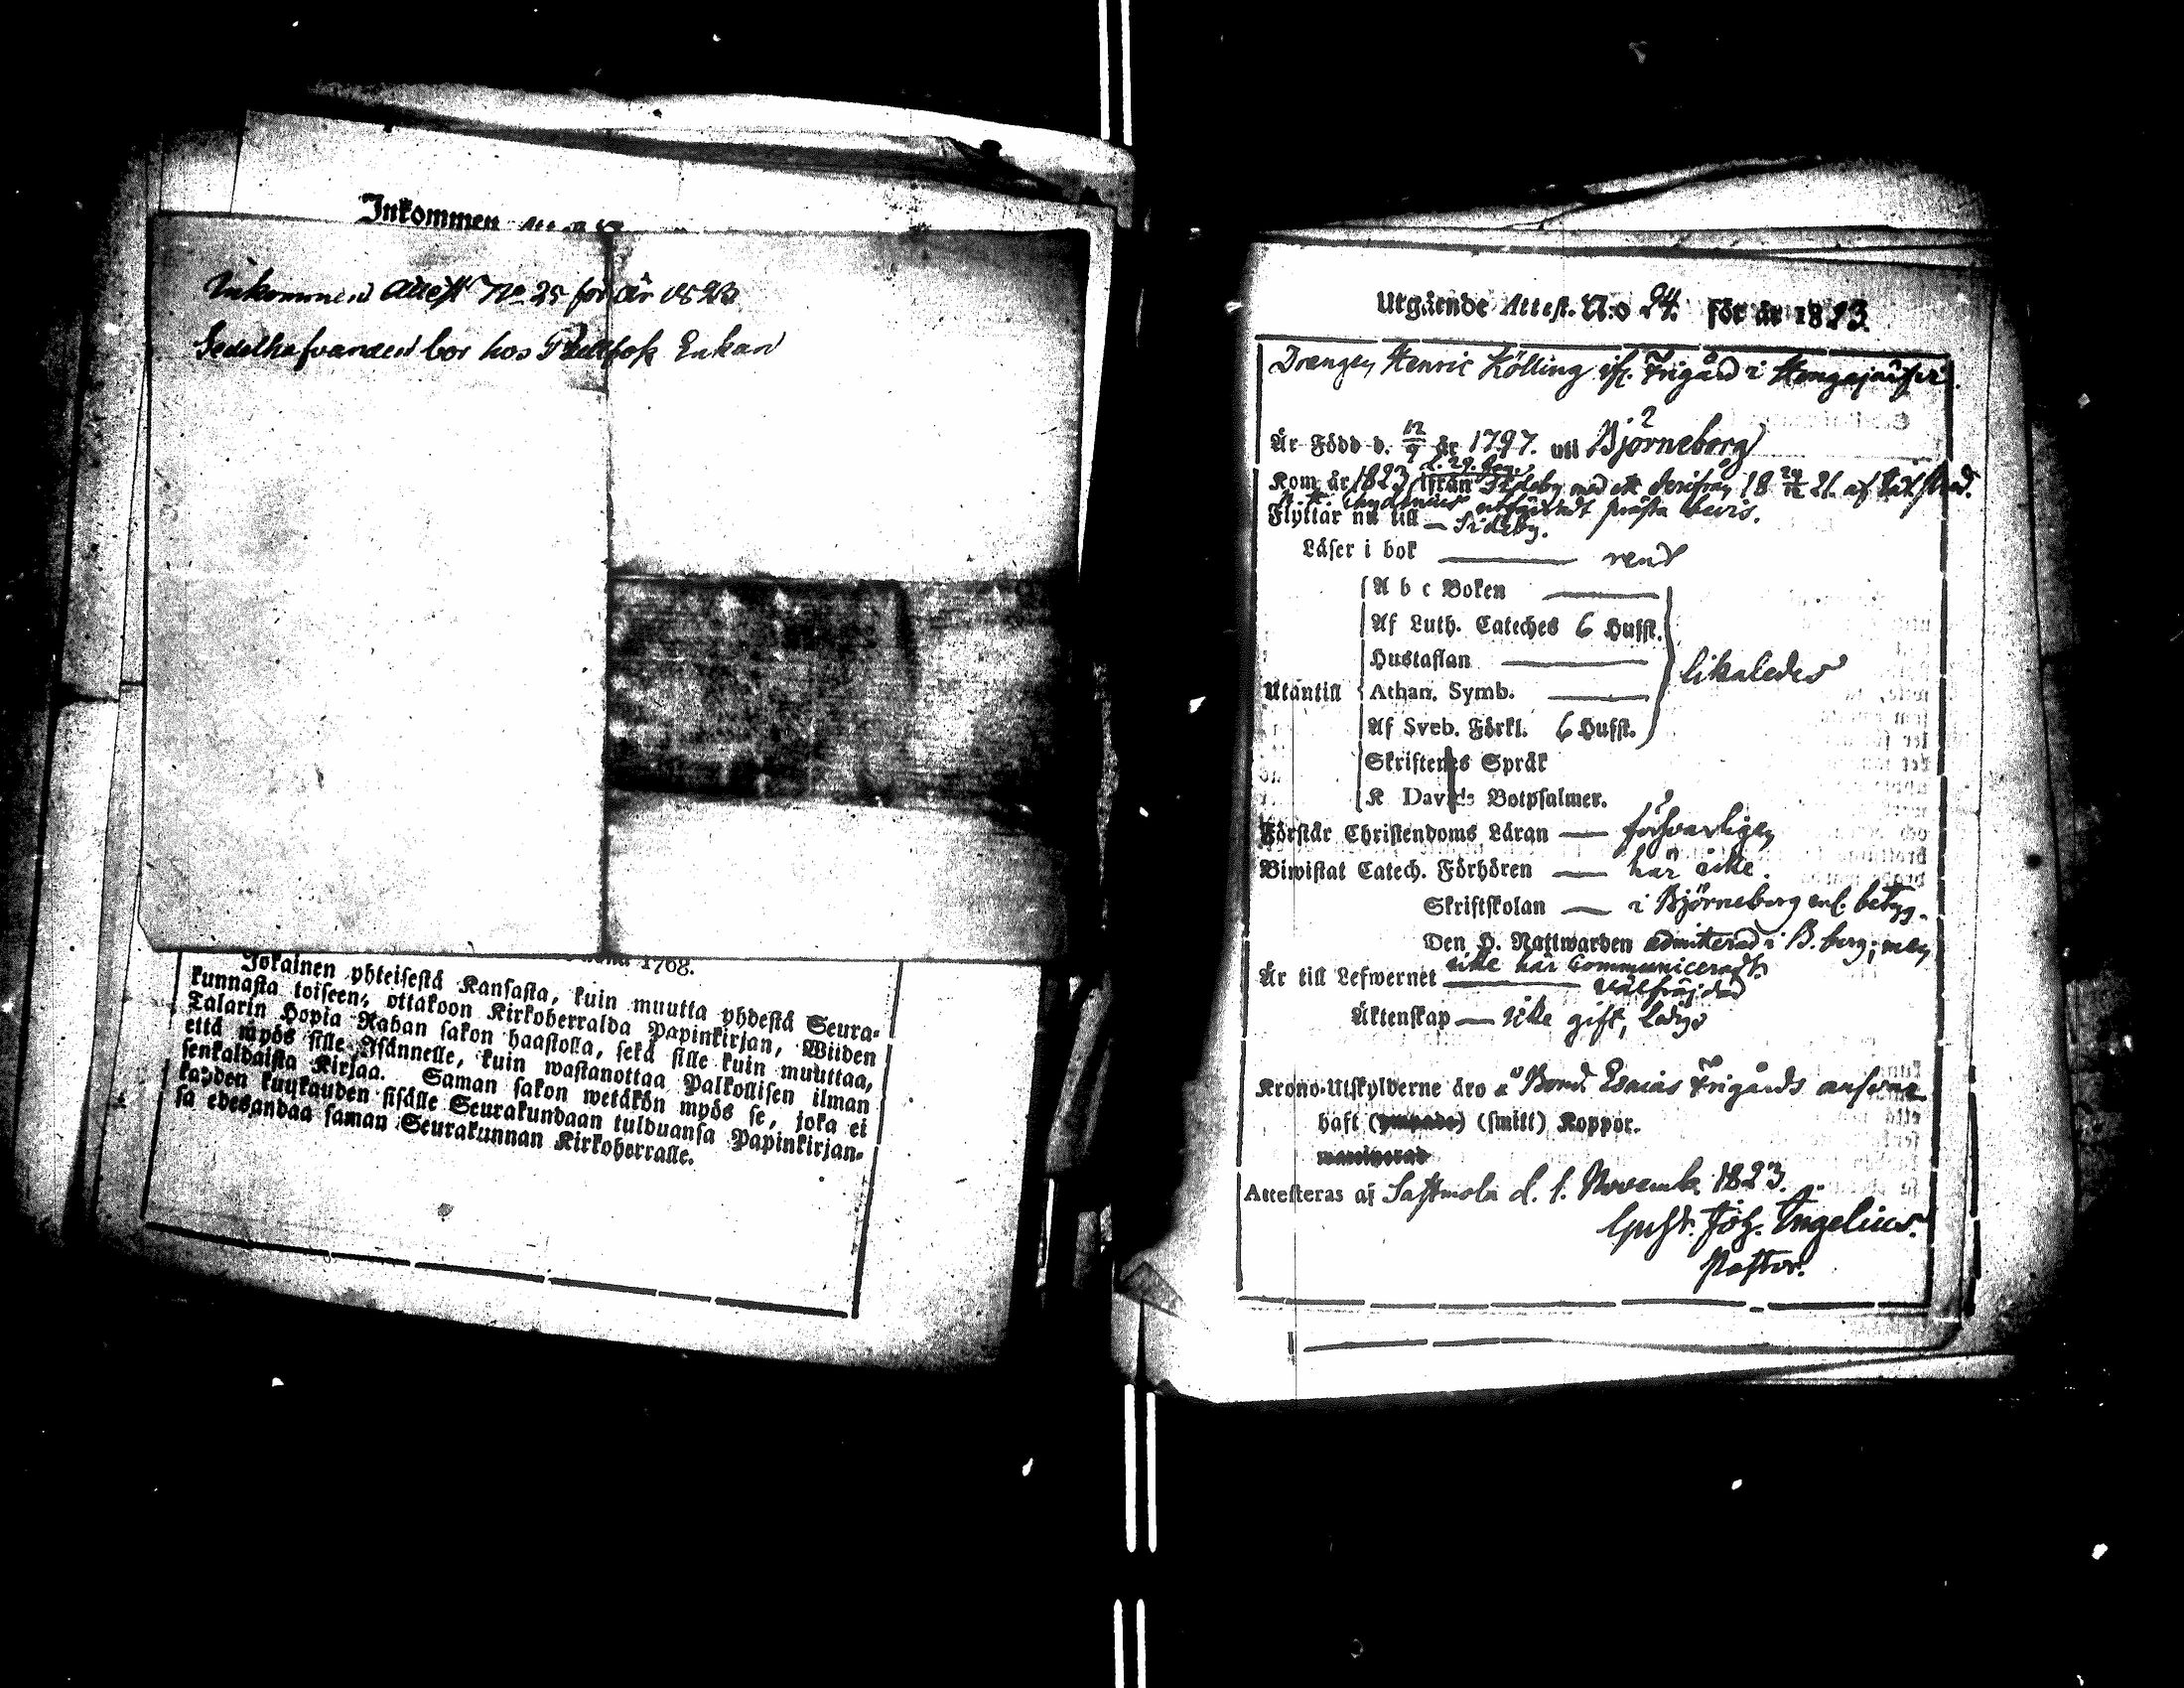 Inkommen
Inkommen Attest No 25 för år 1823
Sedelhafvanden bor hos Enkan
1768.
Jokainen yhteisestä Kansasta, kuin muutta yhdestä Seura-
kunnasta toiseen, ottakoon Kirkoherralda Papinkirjan, Wiiden
Talarin Hopia Rahan sakon haastolla, sekä sille kuin muuttaa,
että myös sille Isännelle, kuin wastanottaa Palkollisen ilman
senkaldaista Kirjaa. Saman sakon wetäkön myös se, joka ei
kahden kuukauden sisälle Seurakundaan tulduansa Papinkirjan-
sa edesandaa saman Seurakunnan Kirkoherralle.
Utgående Attest. N:o 24. för år 1823.
Drengen Henric Kölling ifr. Frigård i
Är Född d. 12/9 år 1797. uti Björneborg ?
d. 29. 
Kom år 1823 ifrån Sideby med ett derifrån 18 24/12 21. af
utfärdadt präste bevis.
Flyttar nu till — Sideby.
Läser i bok — rent
A b c Boken —
Af Luth. Cateches 6 Hufst.
Hustaflan —
Utantill Athan. Symb. — likaledes
Af Sveb. Förkl. 6 Hufst.
Skriftenes Språk
K Davids Botpsalmer.
Förstår Christendoms Läran — försvarligen
Biwistat Catech. Förhören — här icke.
Skriftskolan — i Björneborg enl. betyg.
Den H. Nattwarden admitterad i B.borg; men
icke här communicerat
Är till Lefwernet — välfräjdad
Äktenskap — icke gift, ledig
Krono-Utskylderne äro å Bond. Esaias Frigårds ansvar
haft (ympade) (smitt) Koppor.
vaccinerad
Attesteras af Sastmola d. 1. Novembr. 1823.
Gust. Joh. Ingelius.
Pastor.